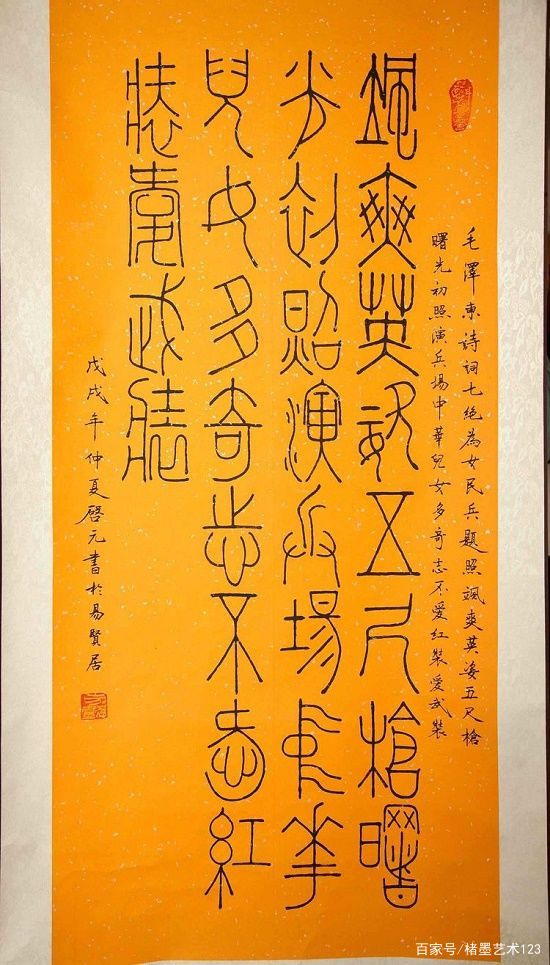 毛澤東詩詞七絕為女民兵題照颯爽英姿五尺槍
曙光初照演兵場中華兒女多奇志不愛紅裝愛武裝
颯爽英姿五尺槍曙
光初照演兵場中華
兒女多奇志不愛紅
裝愛武裝
戊戌年仲夏啓元書於易賢居
百家号/楮墨艺术123